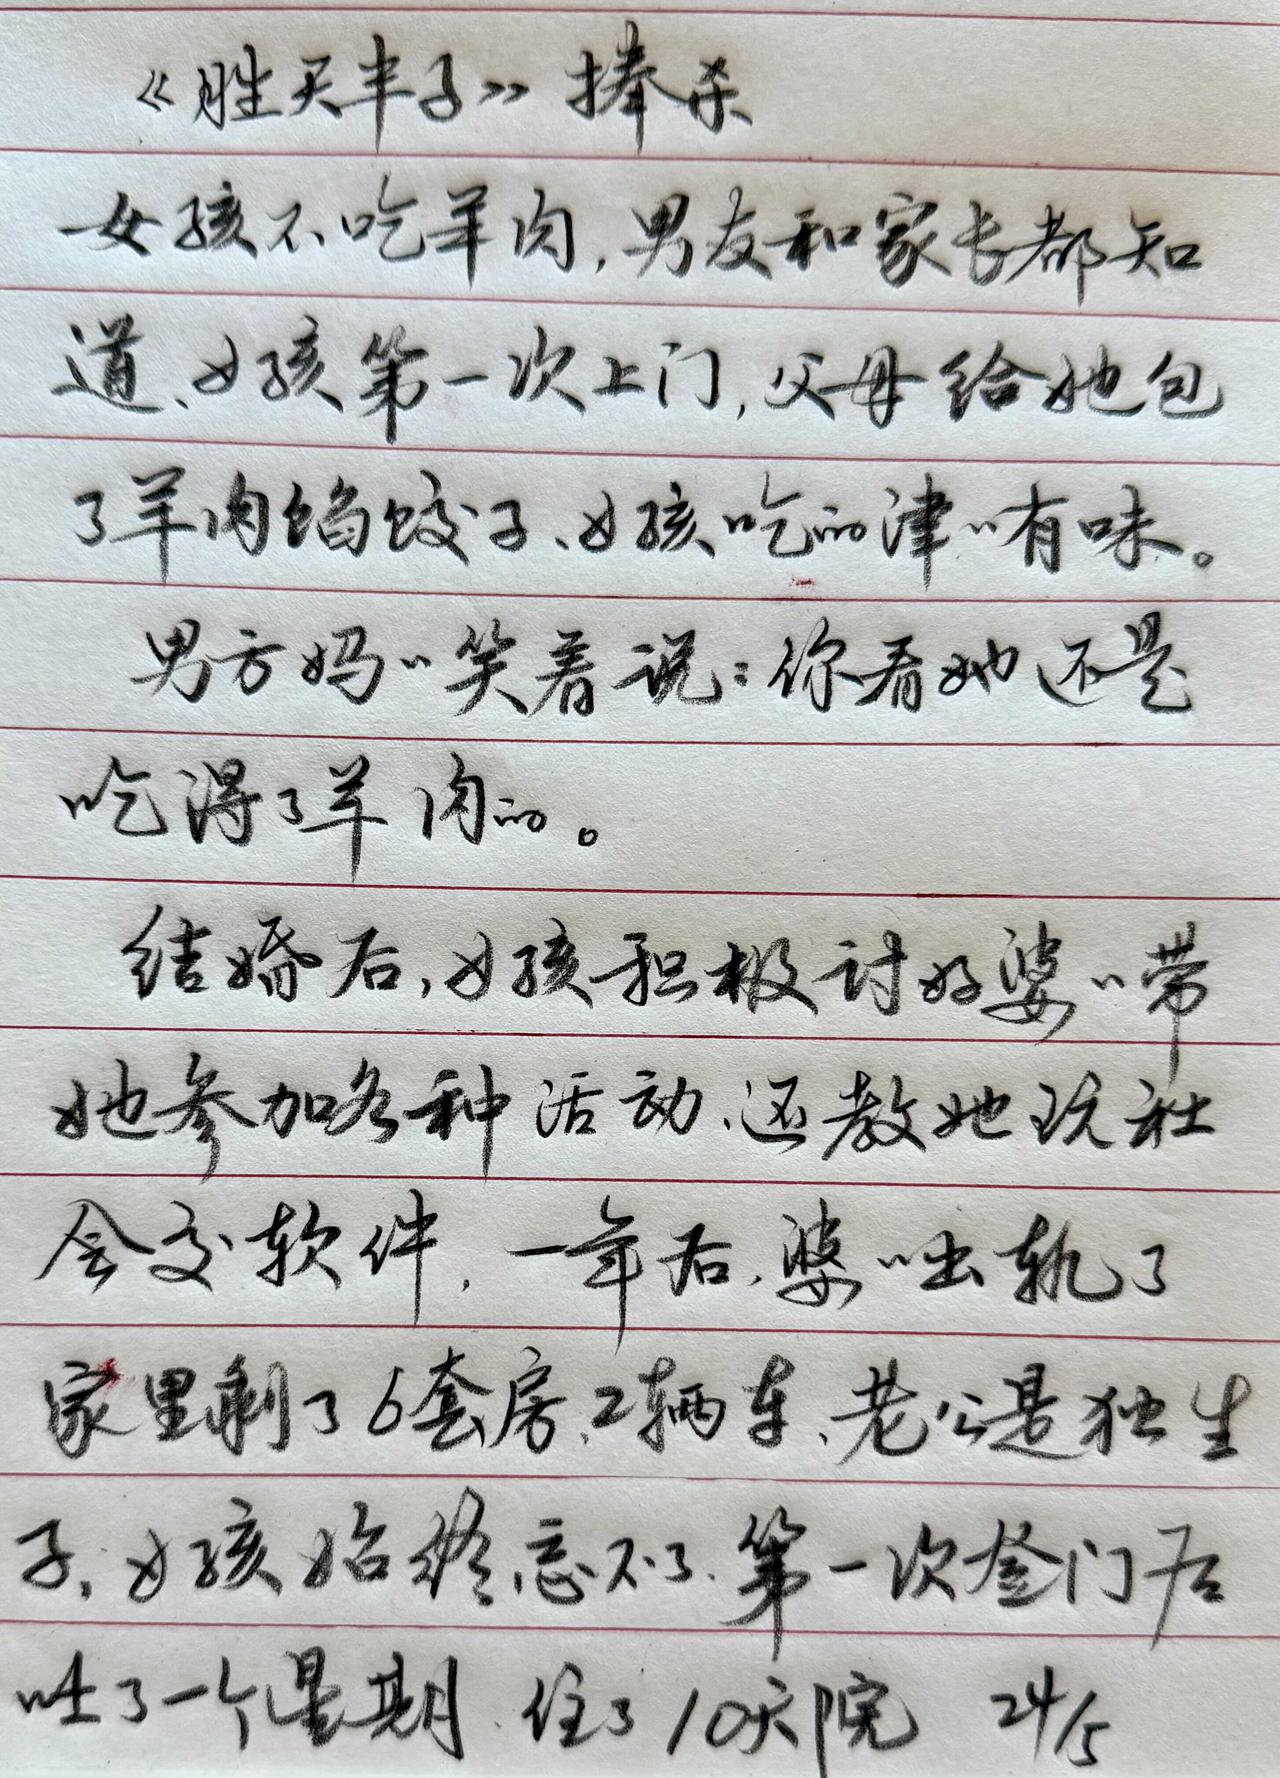 《胜天半子》捧杀
女孩不吃羊肉,男友和家长都知
道、女孩第一次上门,父母给她包
了羊肉馅饺子、女孩吃的津〃有味。
男方妈〃笑着说:你看她还是
吃得了羊肉的。
结婚后,女孩积极讨好婆〃带
她参加各种活动、还教她玩社
会交软件,一年后、婆〃出轨了
家里剩了6套房、2辆车、老公是独生
子、女孩始终忘不了、第一次登门后
吐了一个星期、住了10天院 24/5